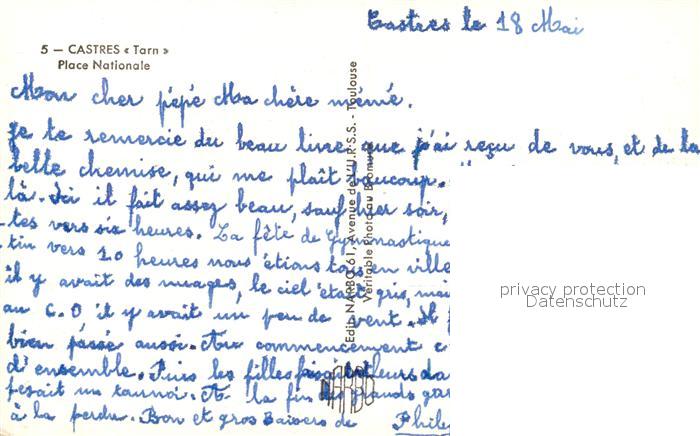 Castres le 18 Mai
5 — CASTRES « Tarn »
Place Nationale
Mon cher pépé Ma chère mémé.
Je te remercie du beau livre que j'ai reçu de vous, et de la
belle chemise, qui me plaît beaucoup.
là. Ici il fait assez beau, sauf hier soir,
tes vers six heures. La fête de Gymnastique
tin vers 10 heures nous étions tous en ville
il y avait des nuages, le ciel était gris, mais
au C.O il y avait un peu de vent. Il
bien passé aussi. Au commencement
d'ensemble. Puis les filles faisaient leurs
fesait un tournoi. A la fin des grands
à la perdu. Bon et gros Baisers de
Edit. NARBO, 61, Avenue de l'U.R.S.S. - Toulouse
Véritable Photo au Bromure
NARBO
privacy protection
Datenschutz